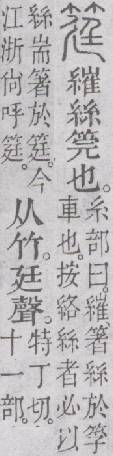 筳
繀絲筦也。
糸部曰。繀箸絲於筟
車也。按絡絲者必以
絲耑箸於筳。今
江浙尚呼筳。
从竹。廷聲。
特丁切。
十一部。